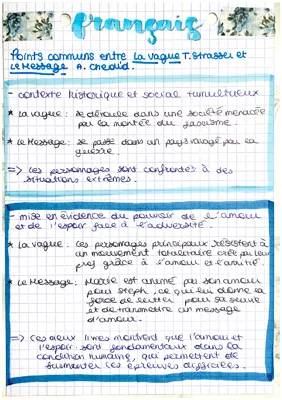 français
Points communs entre La Vague T. Strasser et
Le Message A. Chedid.
- contexte historique et social tumultueux
* La vague : se déroule dans une société menacée
par la montée du fascisme.
* Le Message : se passe dans un pays ravagé par la
guerre.
=> Les personnages sont confrontés à des
situations extrêmes.
- mise en évidence du pouvoir de l'amour
et de l'espoir face à l'adversité.
* La vague : Les personnages principaux résistent à
un mouvement totalitaire crée par leur
prof grâce à l'amour et l'amitié.
* Le Message : Marie est animé par son amour
pour Steph, ce qui lui donne la
force de lutter pour sa survie
et de transmettre un message
d'amour.
=> Ces deux livres montrent que l'amour et
l'espoir sont fondamentaux dans la
condition humaine, qui permettent de
surmonter les épreuves difficiles.